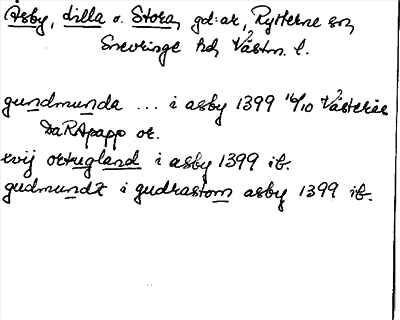 Åsby, Lilla o. Stora, gd:ar, Rytterne sn,
Snevringe hd, Västm. l.
gundmunda ... i asby 1399 16/10 Västerås
DaRApapp or.
xvij ortugland i asby 1399 ib.
gudmundz i gudhastom asby 1399 ib.